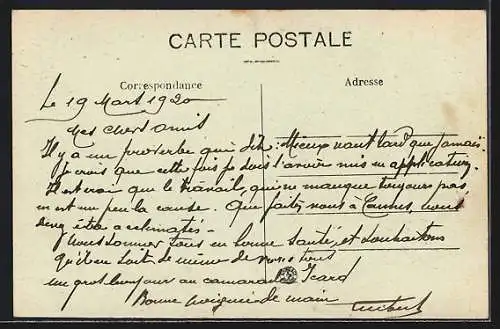 CARTE POSTALE
Correspondance
Adresse
Le 19 Mars 1920
Mes chers amis
Il y a un proverbe qui dit : Mieux vaut tard que jamais.
Je crois que cette fois je dois l'avoir mis en application.
Il est vrai que le travail, qui ne manque toujours pas,
en est un peu la cause. Que faites vous à Cannes, vous
être acclimatés.
Nous sommes tous en bonne santé, et souhaitons
qu'il en soit de même de vous tous
un gros bonjour au camarade Icard
Bonne poignée de main